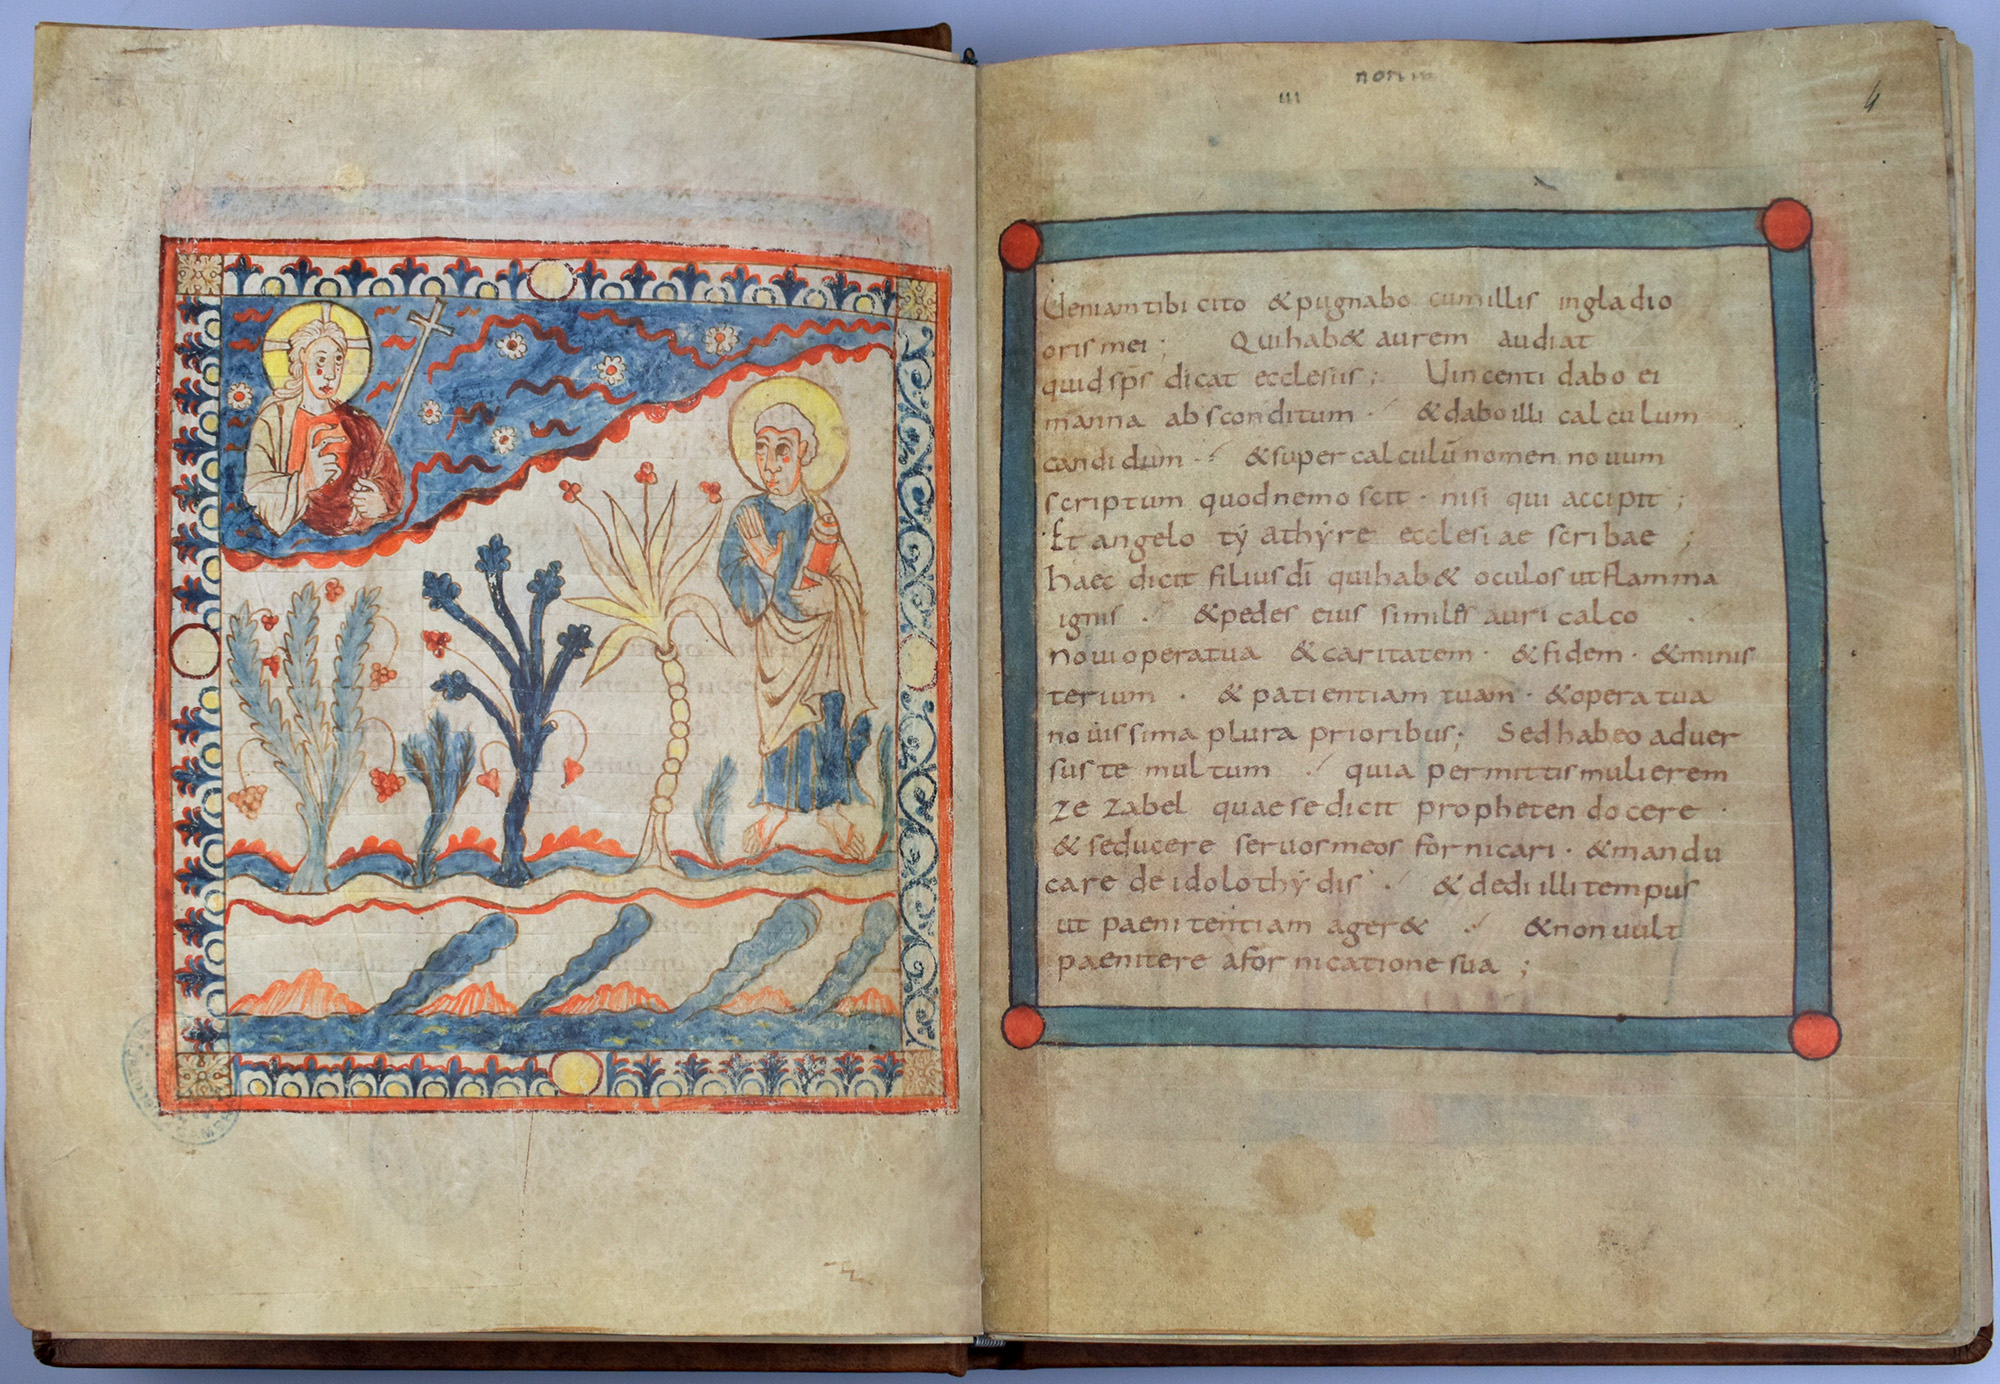 non
iii
4
Ueniam tibi cito & pugnabo cum illis in gladio
oris mei ; Qui hab& aurem audiat
quid sp̄s dicat ecclesiis ; Uincenti dabo ei
manna absconditum · & dabo illi calculum
candidum · & super calculū nomen nouum
scriptum quod nemo scit · nisi qui accipit ;
Et angelo tẏ athẏre ecclesiae scribae ;
haec dicit filius dī qui hab& oculos ut flamma
ignis · & pedes eius similes auri calco
noui opera tua & caritatem · & fidem · & minis
terium · & patientiam tuam · & opera tua
nouissima plura prioribus ; Sed habeo aduer
sus te multum · quia permittis mulierem
ze zabel quae se dicit propheten docere ·
& seducere seruos meos fornicari · & mandu
care de idolothẏdis · & dedi illi tempus
ut paenitentiam ager& · & non uult
paenitere a fornicatione sua ;